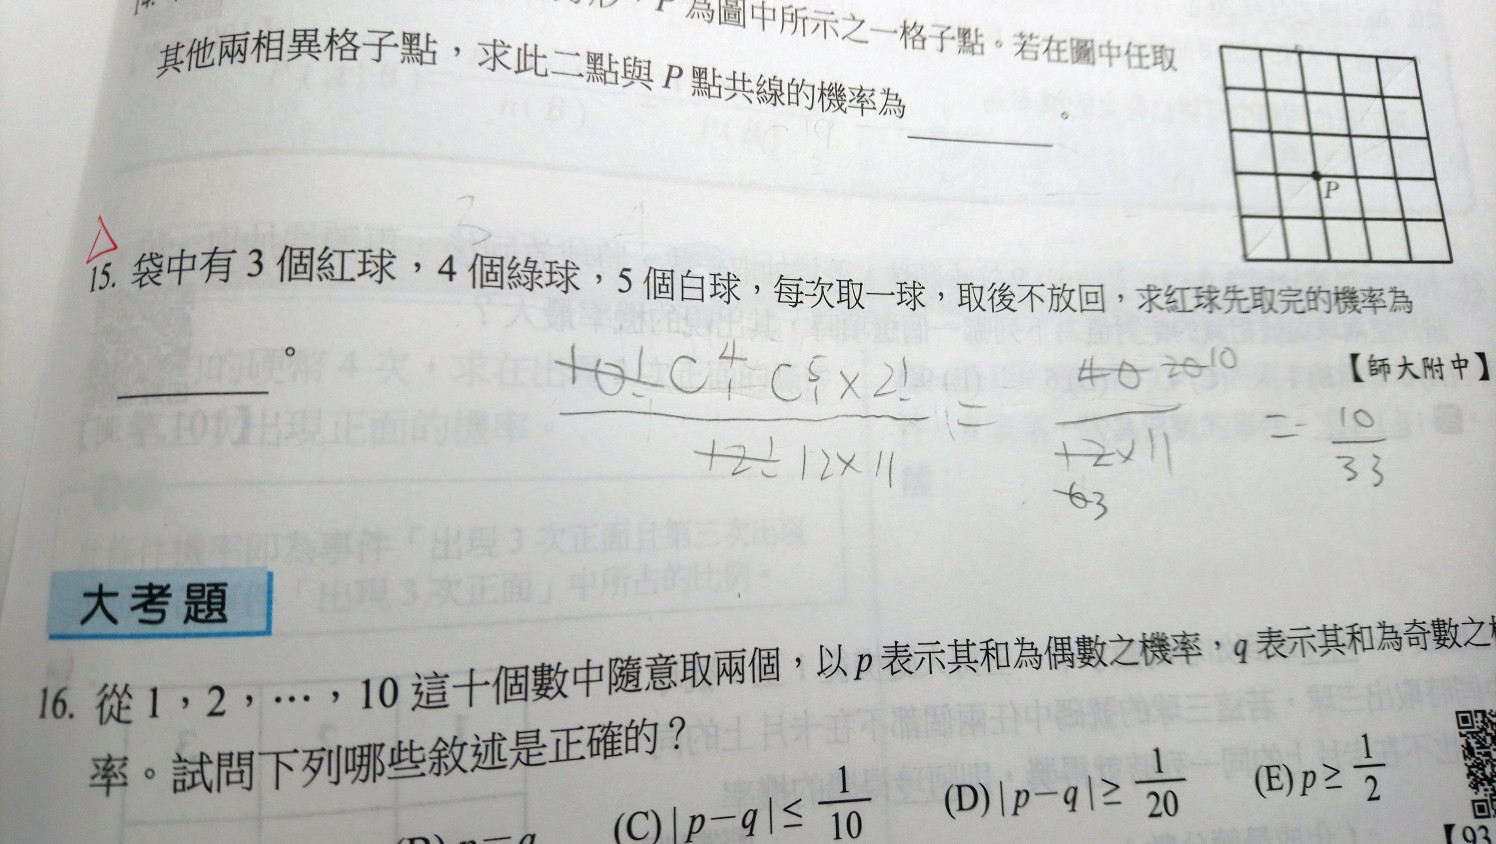 為圖中所示之一格子點。若在圖中任取
其他兩相異格子點，求此二點與 P 點共線的機率為 。
P
15. 袋中有 3 個紅球，4 個綠球，5 個白球，每次取一球，取後不放回，求紅球先取完的機率為
。 【師大附中】
10! C 4 1 C 5 1 × 2! / 12! 12×11 = 40 20 10 / 12×11 6 3 = 10/33
大考題
16. 從 1，2，…，10 這十個數中隨意取兩個，以 p 表示其和為偶數之機率，q 表示其和為奇數之
率。試問下列哪些敘述是正確的？
(C) |p－q| ≤ 1/10 (D) |p－q| ≥ 1/20 (E) p ≥ 1/2
【93